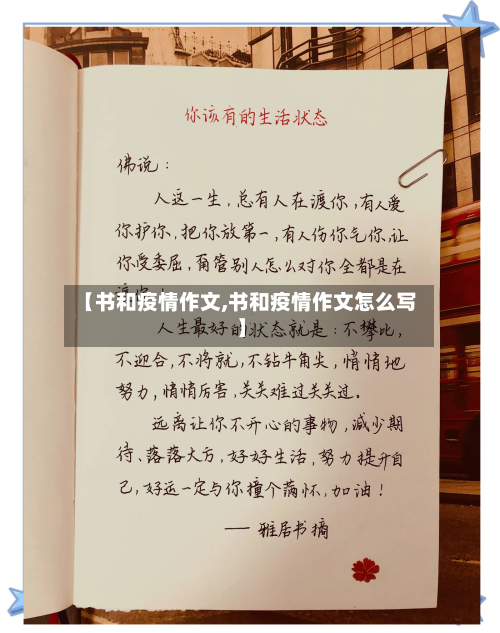 你该有的生活状态
佛说：
人这一生，总有人在渡你，有人爱
你护你，把你放第一，有人伤你气你，让
你受委屈，甭管别人怎么对你全都是在
渡你！
【书和疫情作文,书和疫情作文怎么写
】
人生最好的状态就是：不攀比，
不迎合，不将就，不钻牛角尖，悄悄地
努力，悄悄厉害，关关难过关关过。
远离让你不开心的事物，减少期
待、落落大方，好好生活，努力提升自
己，好运一定与你撞个满怀，加油！
—— 雅居书摘